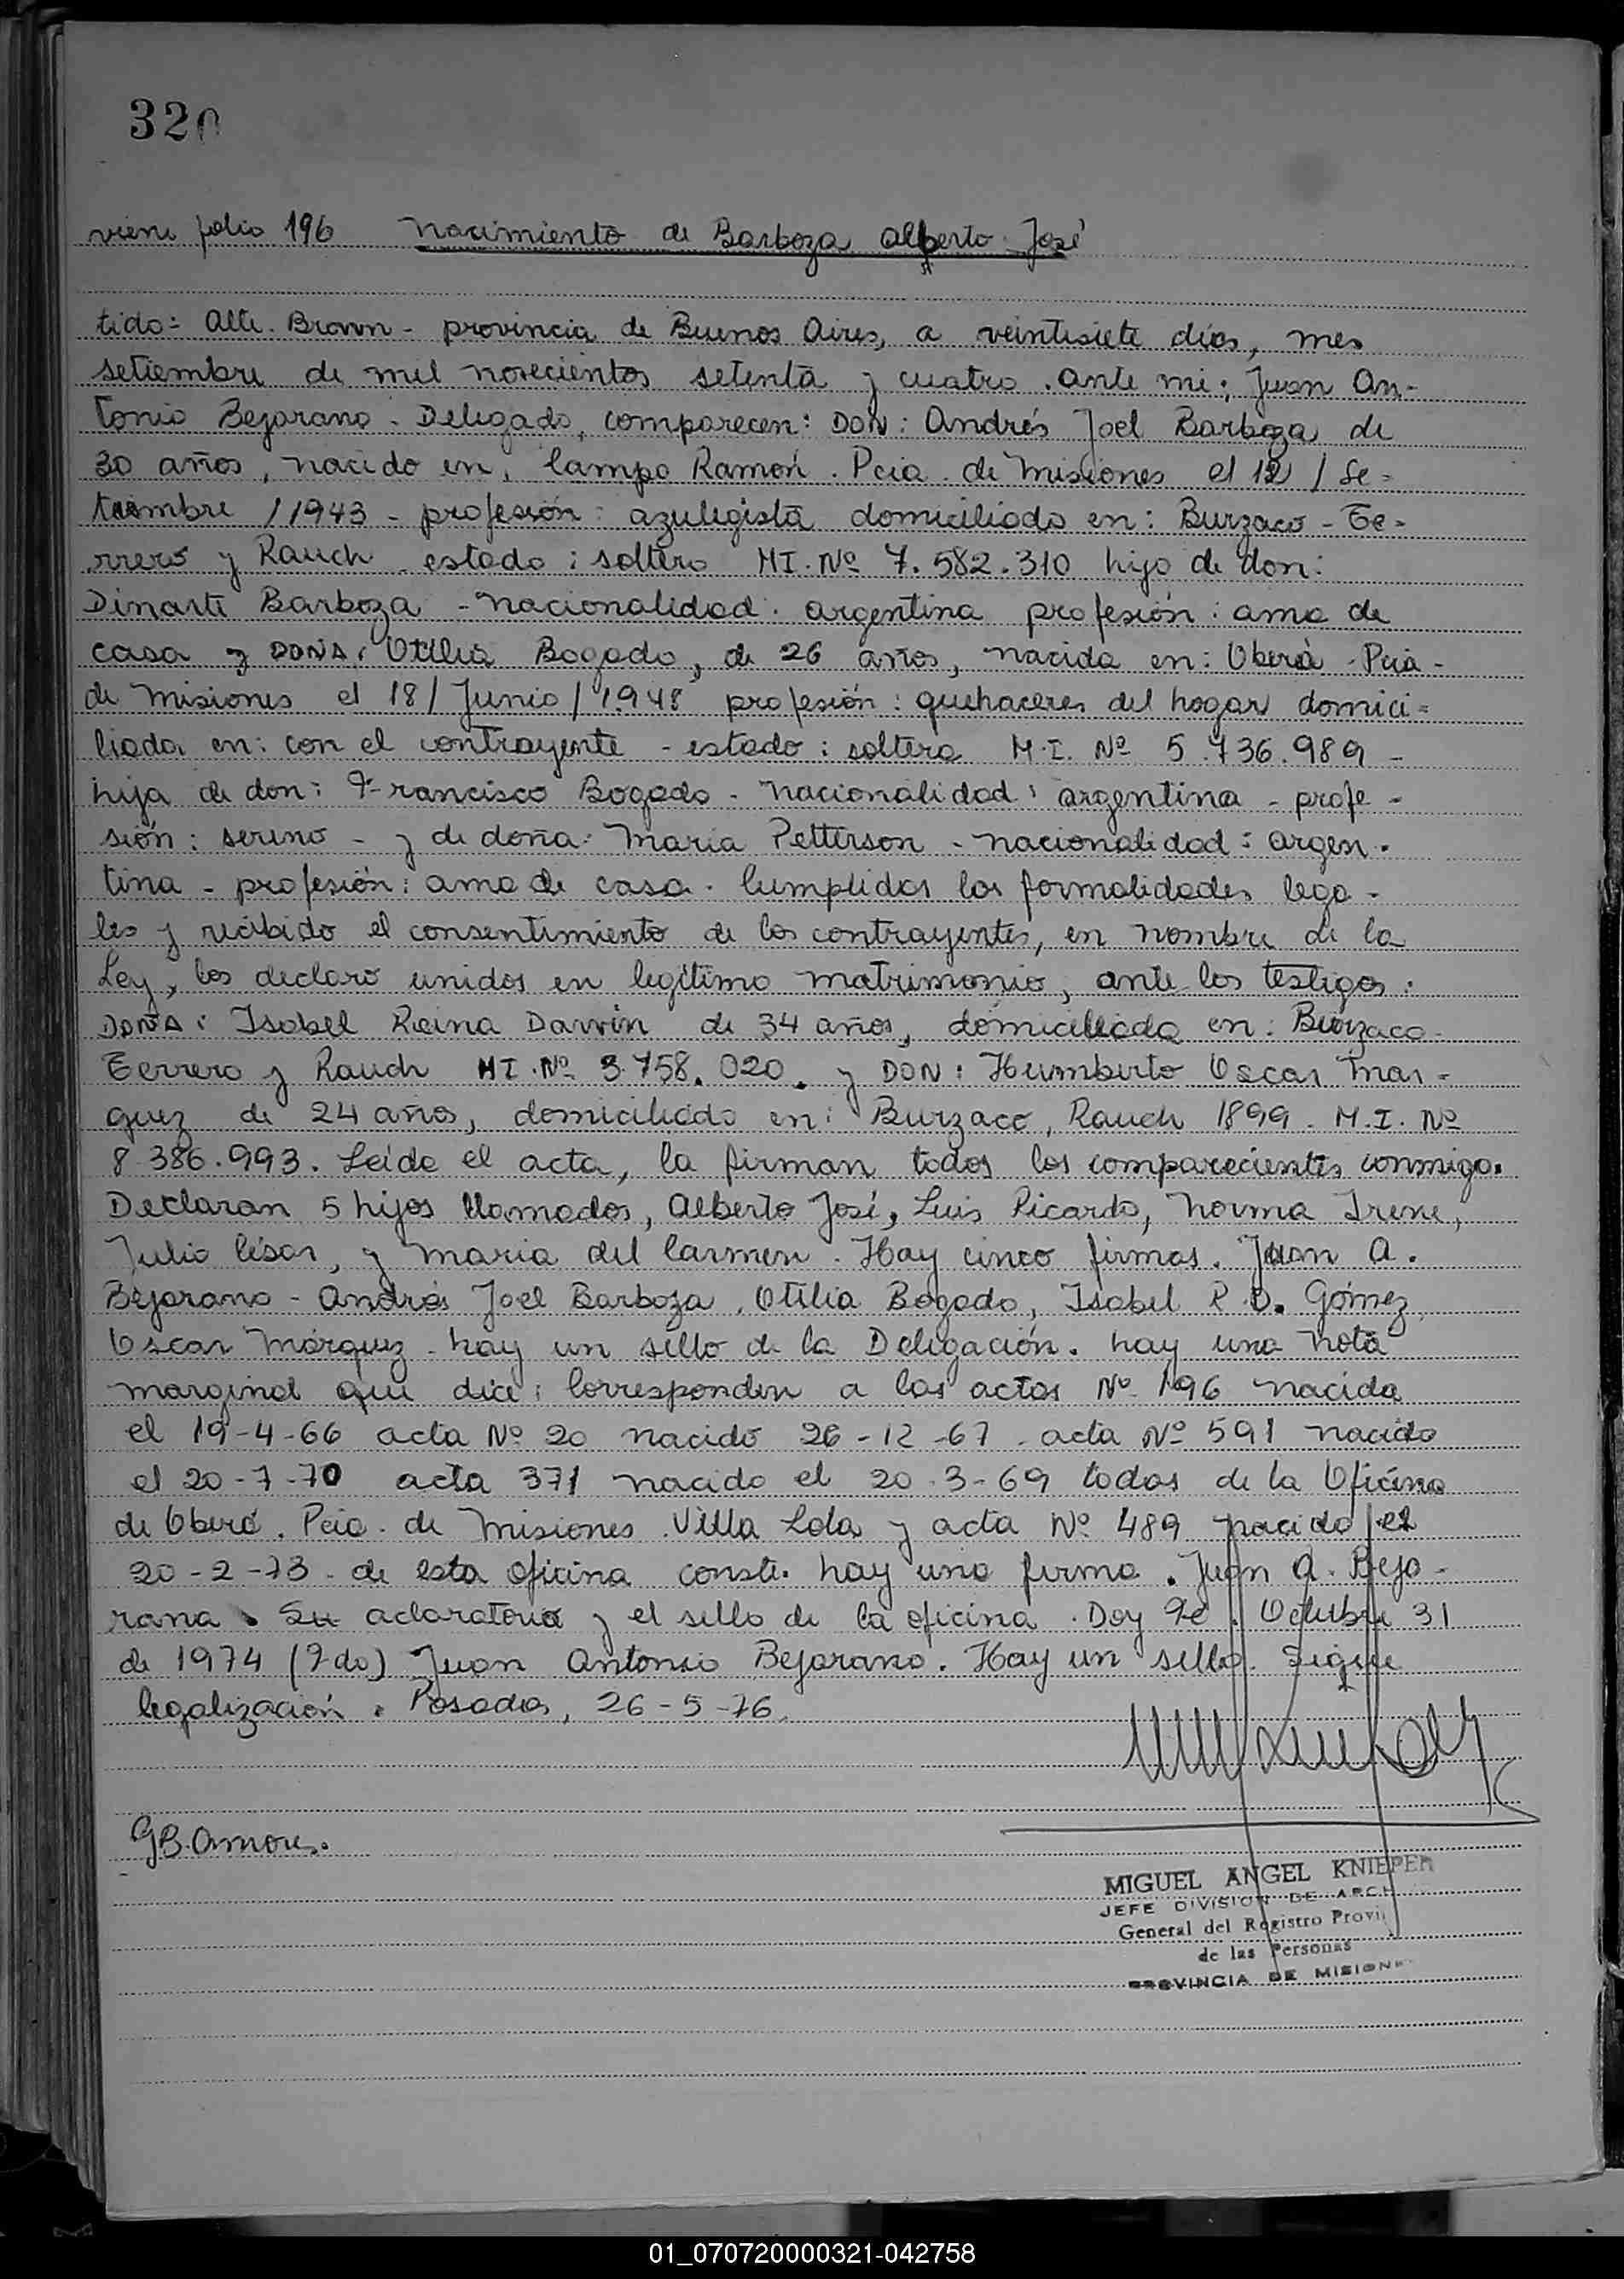 320
viene folio 196 Nacimiento de Barboza Alberto José
tido: Alte. Brown - provincia de Buenos Aires, a veintisiete días, mes
setiembre de mil novecientos setenta y cuatro. Ante mi: Juan An-
tonio Bejarano - Delegado, comparecen: DON: Andrés Joel Barboza de
30 años, nacido en, Campo Ramón. Pcia. de Misiones el 12 / Se-
tiembre / 1943 - profesión: azulegista domiciliado en: Burzaco - Ge-
rrero y Rauch estado: soltero MI. Nº 7.582.310 hijo de don:
Dinarte Barboza - Nacionalidad: argentina profesión: ama de
casa y DOÑA: Otilia Bogado, de 26 años, nacida en: Oberá - Pcia -
de Misiones el 18 / Junio / 1948 profesión: quehaceres del hogar domici-
liada en: con el contrayente - estado: soltera M.I. Nº 5.736.989 -
hija de don: Francisco Bogado - Nacionalidad: argentina - profe-
sión: sereno - y de doña: Maria Petterson - nacionalidad: argen-
tina - profesión: ama de casa. Cumplidas las formalidades lega-
les y recibido el consentimiento de los contrayentes, en nombre de la
Ley, los declaro unidos en legítimo matrimonio, ante los testigos:
DOÑA: Isabel Reina Darwin de 34 años, domiciliada en: Burzaco-
Gerrero y Rauch MI. Nº 3.758.020. y DON: Humberto Oscar Mar-
quez de 24 años, domiciliado en: Burzaco, Rauch 1899. M.I. Nº
8.386.993. Leída el acta, la firman todos los comparecientes conmigo.
Declaran 5 hijos llamados, Alberto José, Luis Ricardo, Norma Irene,
Julio César, y Maria del Carmen. Hay cinco firmas. Juan A.
Bejarano - Andrés Joel Barboza, Otilia Bogado, Isabel R. D. Gómez,
Oscar Márquez - hay un sello de la Delegación. hay una nota
marginal que dice: Corresponden a las actas Nº 196 nacida
el 19-4-66 acta Nº 20 nacido 26-12-67 - acta Nº 591 nacido
el 20-7-70 acta 371 nacido el 20-3-69 todas de la Oficina
de Oberá. Pcia. de Misiones. Villa Lola y acta Nº 489 nacido el
20-2-73 - de esta oficina conste. hay una firma. Juan A. Beja-
rana. Su aclaratoria y el sello de la oficina. Doy Fe. Octubre 31
de 1974 (Fdo) Juan Antonio Bejarano. Hay un sello. Sigue
legalización. Posadas, 26-5-76.
GB. Amores.
MIGUEL ANGEL KNIEPER
JEFE DIVISION DE ARCH
General del Registro Provin
de las Personas
PROVINCIA DE MISIONE
01_070720000321-042758